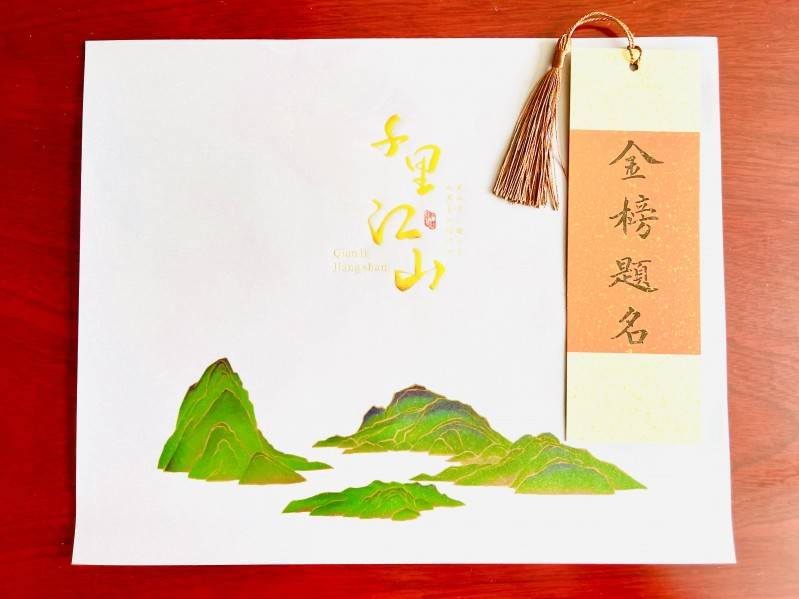 千里江山
Qianli
Jiangshan
金榜题名